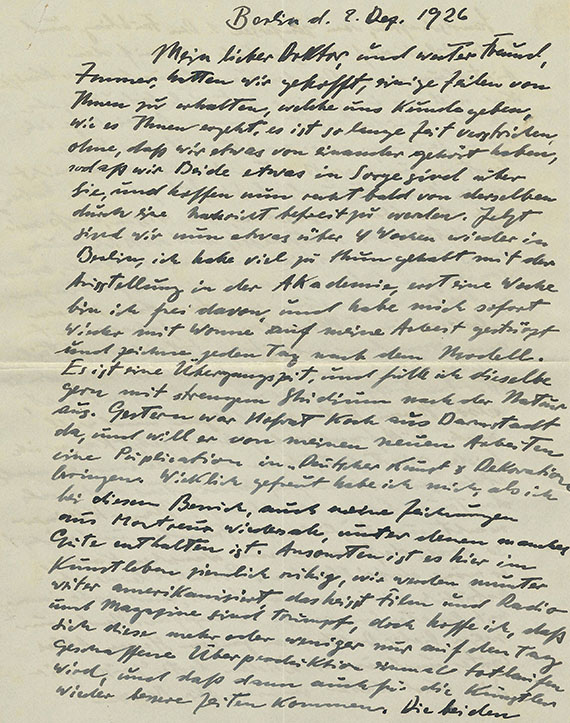 Berlin d. 2. Dez. 1926
Mein lieber Doktor, und werter Freund,
Immer, hatten wir gehofft, einige Zeilen von
Ihnen zu erhalten, welche uns Kunde geben,
wie es Ihnen ergeht, es ist so lange Zeit verstrichen,
ohne, daß wir etwas von einander gehört haben,
sodaß wir Beide etwas in Sorge sind über
Sie, und hoffen nun recht bald von derselben
durch eine Nachricht befreit zu werden. Jetzt
sind wir nun etwas über 4 Wochen wieder in
Berlin, ich habe viel zu thun gehabt mit der
Ausstellung in der Akademie, erst eine Woche
bin ich frei davon, und habe mich sofort
wieder mit Wonne, auf meine Arbeit gestürzt
und zeichne jeden Tag nach dem Modell.
Es ist eine Übergangszeit, und fülle ich dieselbe
gern mit strengem Studium nach der Natur
aus. Gestern war Hofrat Koch aus Darmstadt
da, und will er von meinen neuen Arbeiten
eine Püplication in „Deutscher Kunst & Dekoration
bringen. Wirklich gefreut habe ich mich, als ich
bei diesem Besuch, auch meine Zeichnungen
aus Montreux wiedersah, unter denen manches
Gute enthalten ist. Ansonsten ist es hier im
Kunstleben ziemlich ruhig, wir werden munter
weiter amerikanisiert, das heisst Film und Radio
und Magazine sind Trumpf, doch hoffe ich, daß
sich diese mehr oder weniger nur auf den Tag
geschaffene Überproduktion einmal totlaufen
wird, und daß dann auch für die Künstler
wieder bessere Zeiten kommen. Die beiden